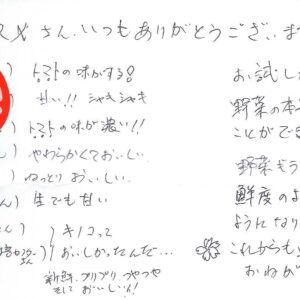 さん、いつもありがとうござい
トマトの味がする!
甘い!! シャキシャキ
トマトの味が濃い!!
やわらかくておいしい
ねっとりおいしい
生でも甘い
キノコって
おいしかったんだ…
新鮮、プリプリ つやつや
そして おいしい!
お試し
野菜の本
ことができ
野菜も
鮮度のよ
ようになり
これからも
おねが